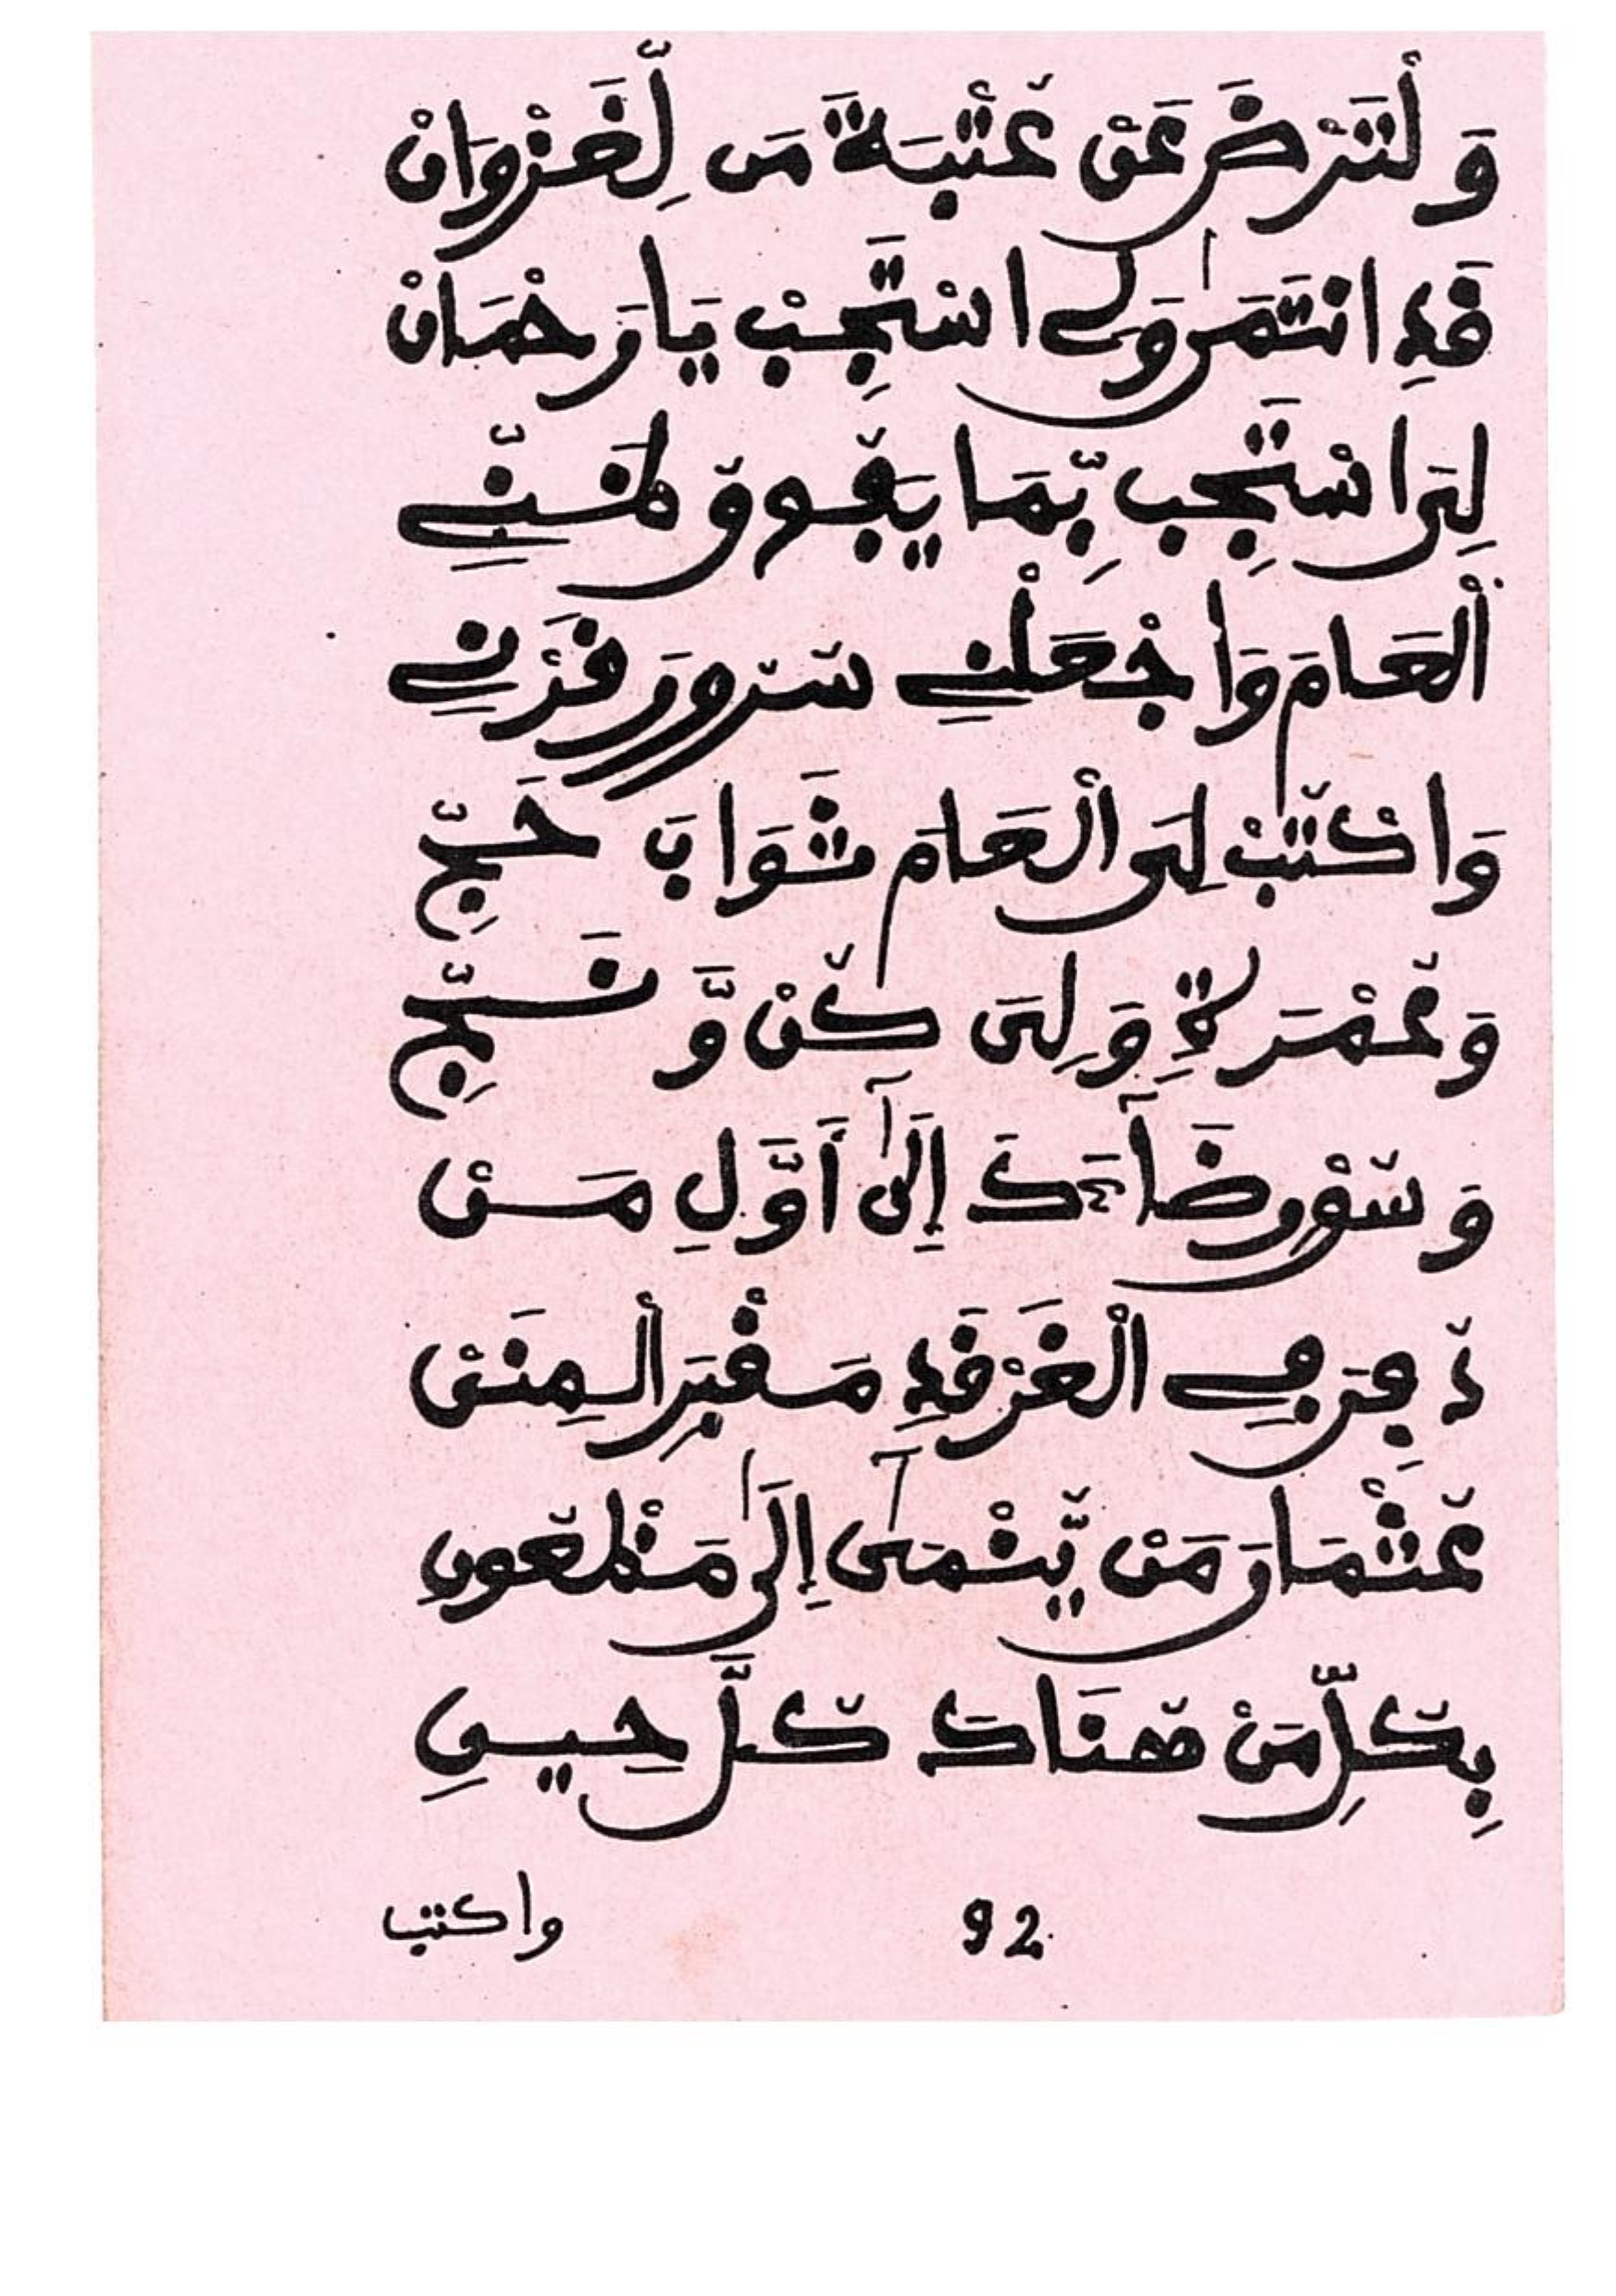 وَلْتَرْضَ عَنْ عُتْبَةَ مَن لِّغَزْوَانْ
قَدِ انْتَمَىٰ وَلِے اسْتَجِبْ يَا رَحْمَانْ
لِىَ اسْتَجِب بِّمَا يَفُوقُ ظَنِّے
الْعَامَ وَاجْعَلْنِے سُرُورَ قَرْنِے
وَاكْتُبْ لِىَ الْعَامَ ثَوَابَ حَجِّ
وَعُمْرَةٍ وَلِىَ كُنْ وَنَجِّ
وَسُقْ رِضَآءَكَ إِلَىٰٓ أَوَّلِ مَنْ
دُفِنَ فِے الْغَرْقَدِ مَقْبَرِ الْمِنَنْ
عُثْمَانَ مَنْ يُّنْمَىٰٓ إِلَىٰ مَظْعُونِ
بِكُلِّ مَنْ هُنَاكَ كُلَّ حِينِ
92
واكتب